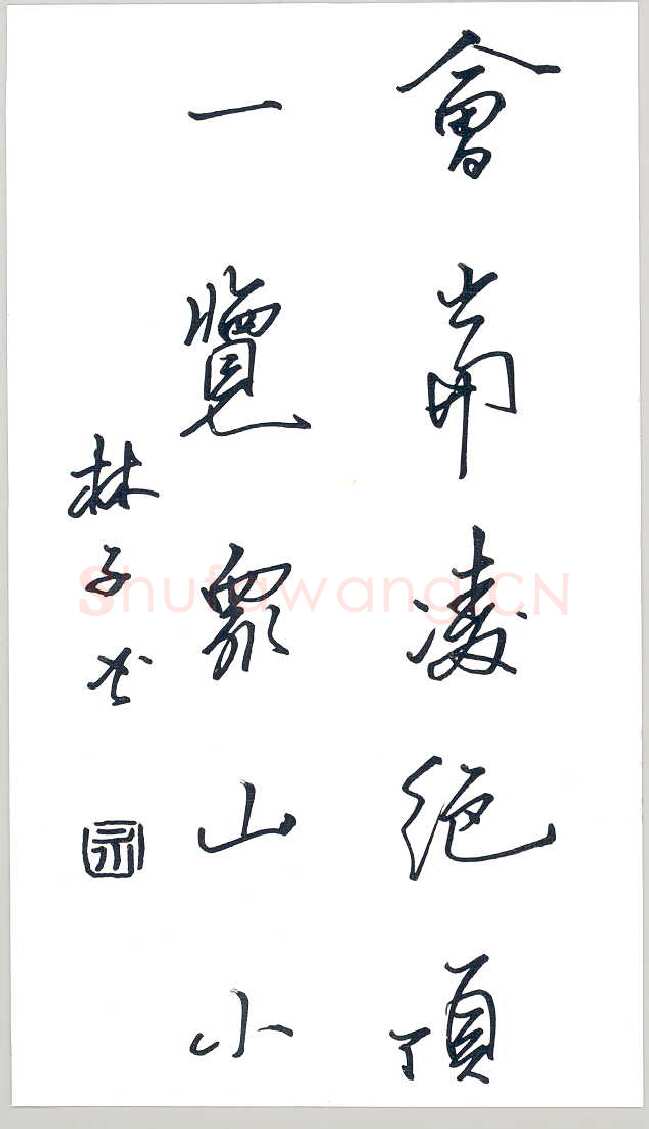 會當凌絕頂
一覽衆山小
林子
Shufawang.CN